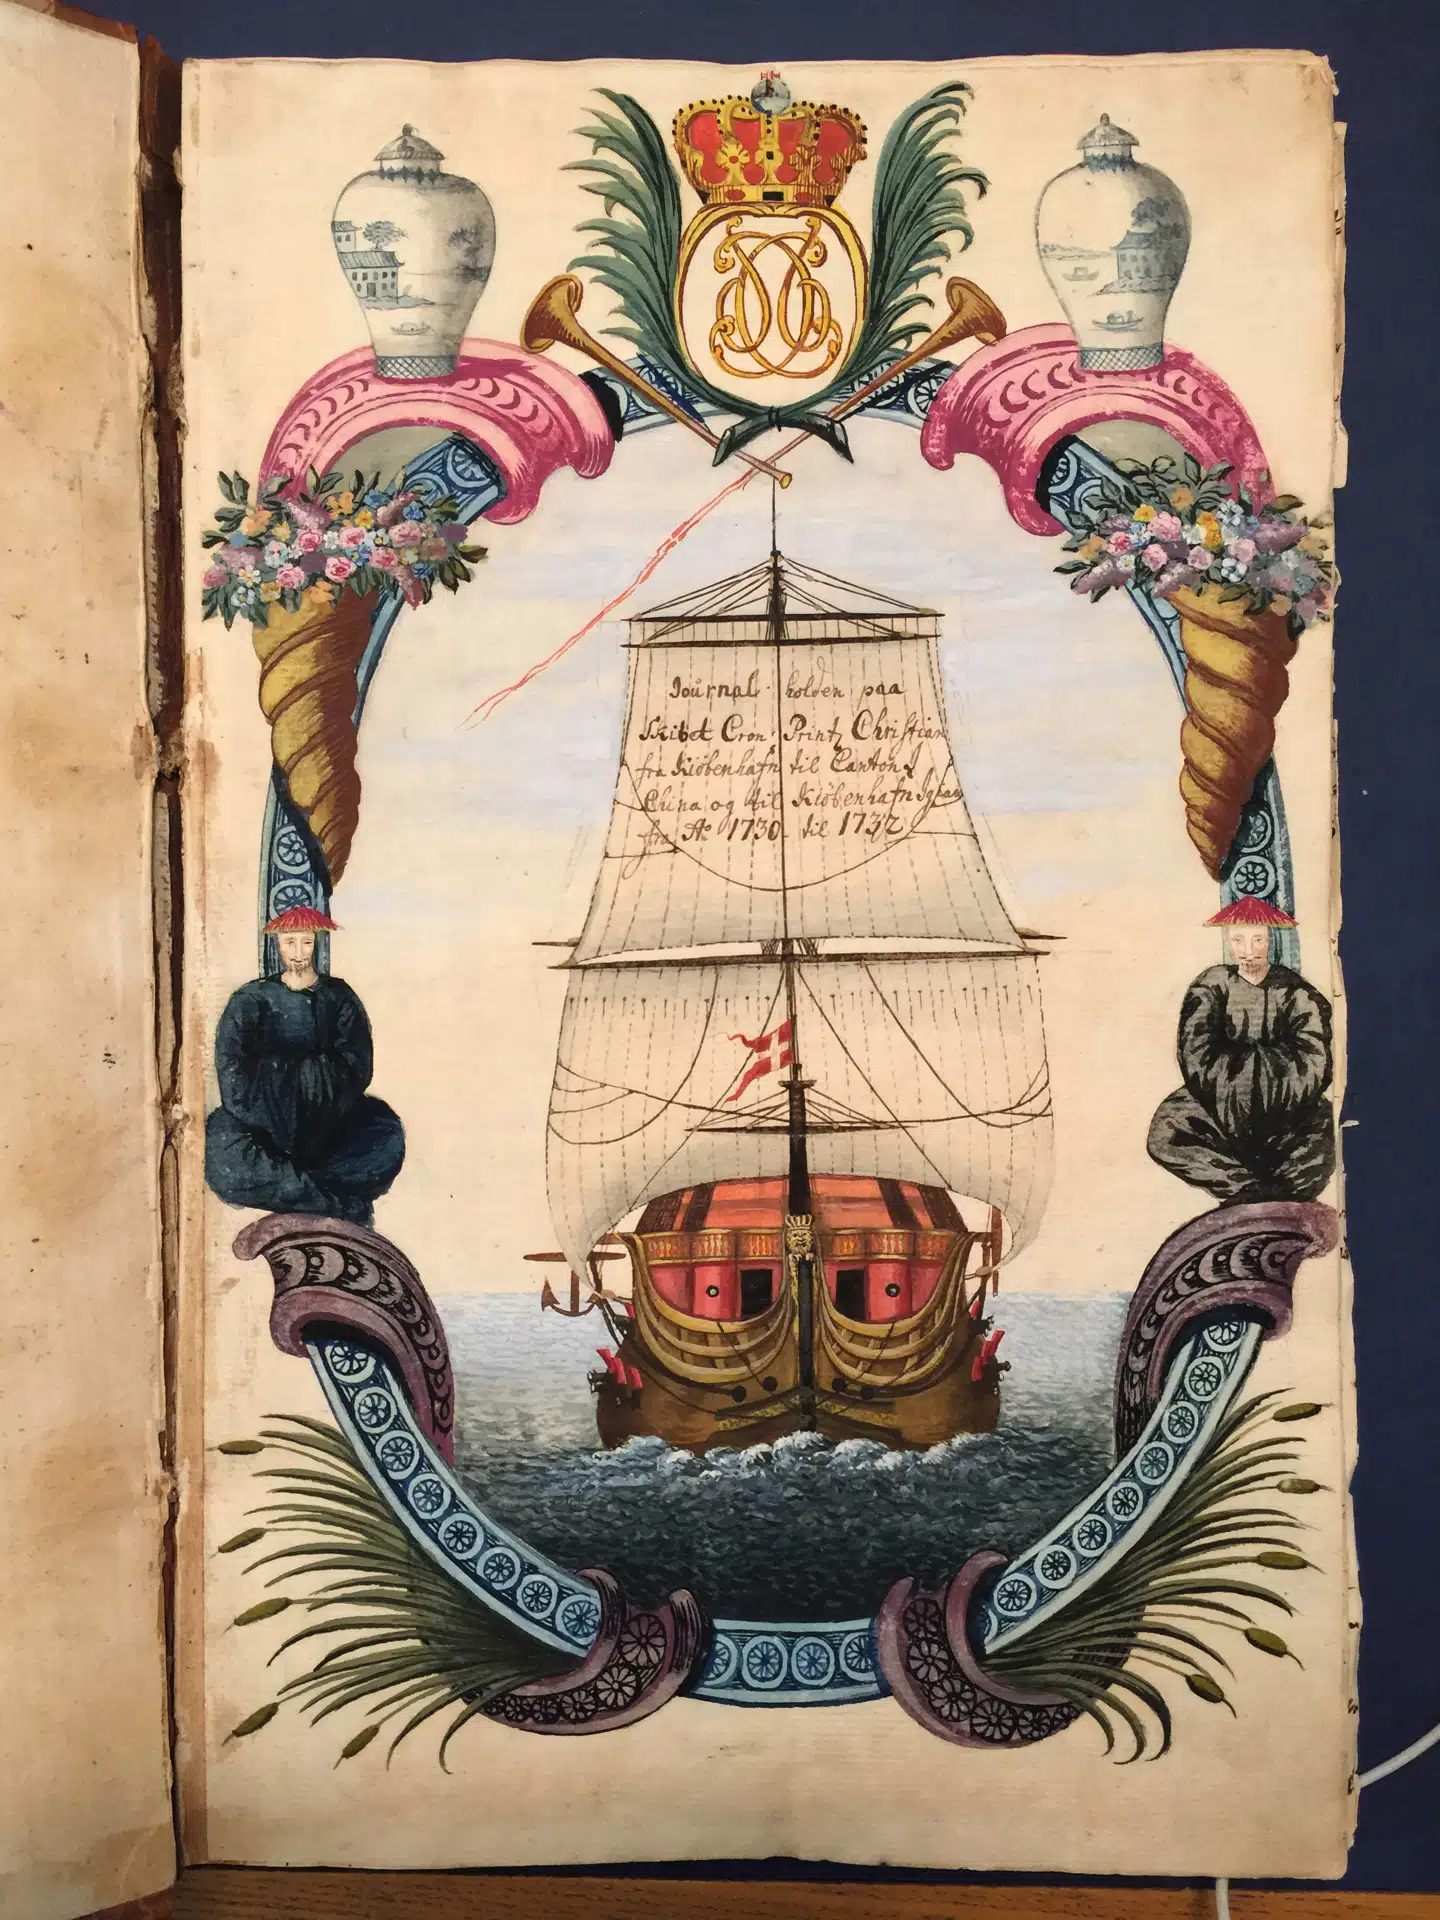 Journal holden paa
Skibet Cron Printz Christian
fra Kiöbenhafn til Canton I
China og til Kiöbenhafn Igien
fra Aº 1730 til 1732